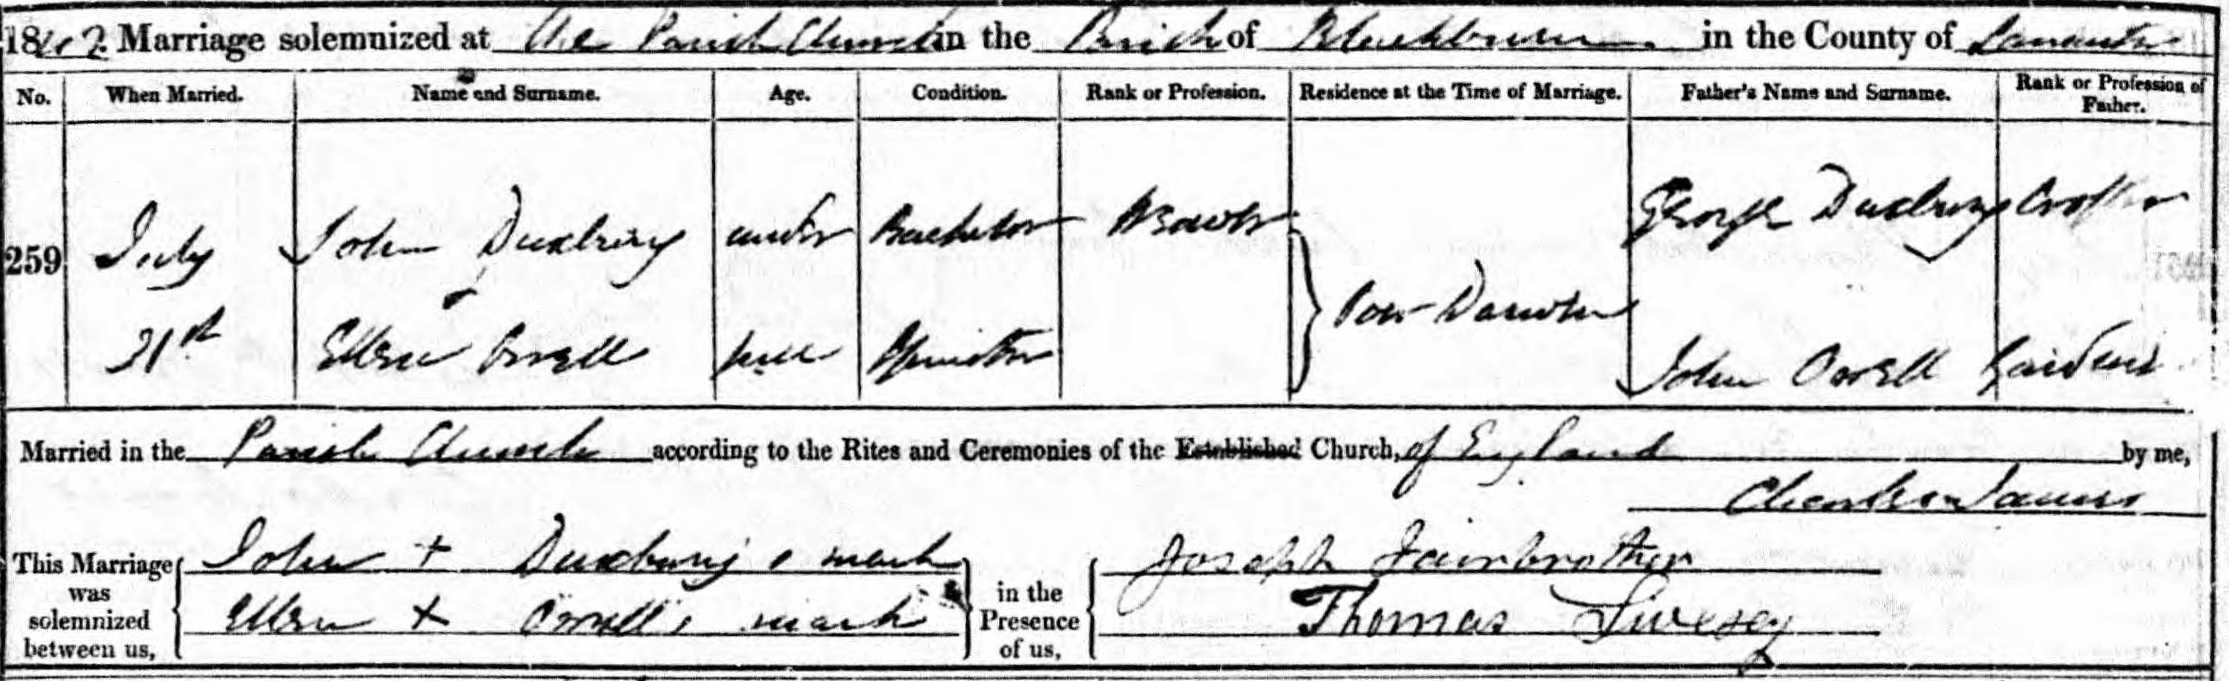 1842. Marriage solemnized at the Parish Church in the Parish of Blackburn in the County of Lancaster
No. When Married. Name and Surname. Age. Condition. Rank or Profession. Residence at the Time of Marriage. Father's Name and Surname. Rank or Profession of Father.
259 July John Duxbury under Bachelor George Duxbury Crofter
Over Darwen
21st Ellen Orrell full Spinster John Orrell Gardener
Married in the Parish Church according to the Rites and Ceremonies of the Established Church, of England by me,
This Marriage was solemnized between us, John + Duxbury's mark in the Presence of us, Joseph Fairbrother
Ellen + Orrell's mark Thomas Livesey